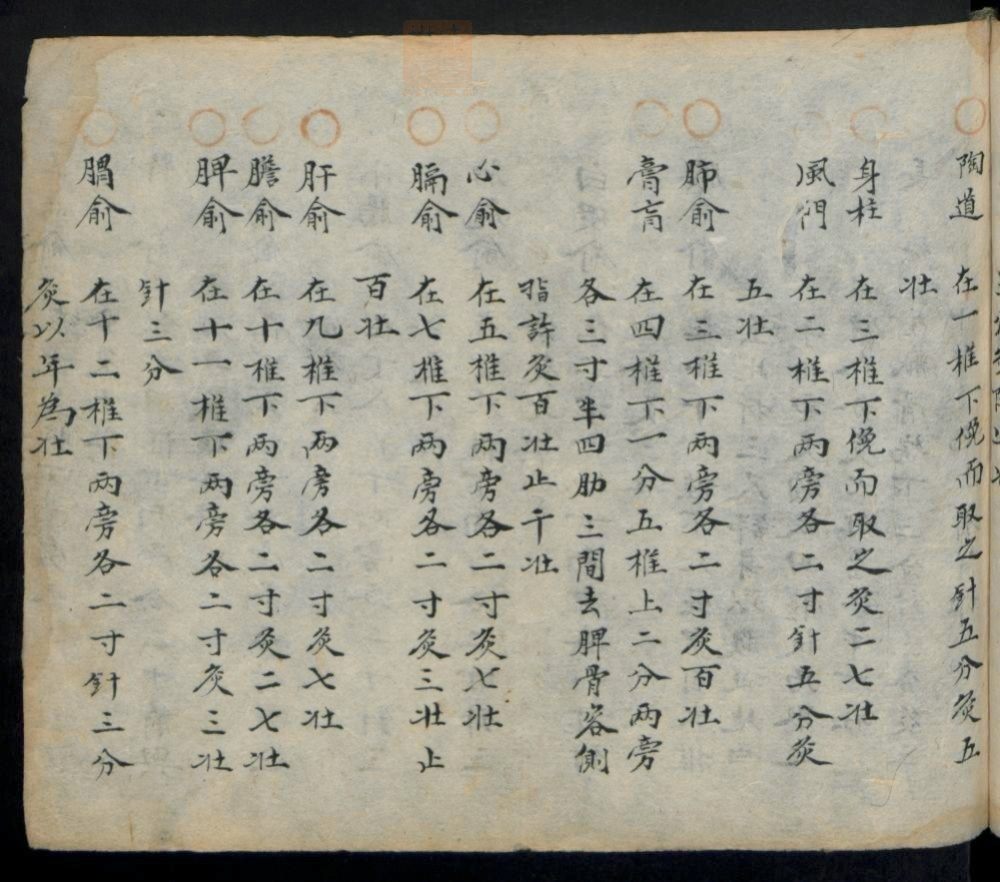 陶道 在一椎下俛而取之針五分灸五
壯
身柱 在三椎下俛而取之灸二七壯
風門 在二椎下兩旁各二寸針五分灸
五壯
肺俞 在三椎下兩旁各二寸灸百壯
膏肓 在四椎下一分五椎上二分兩旁
各三寸半四肋三間去脾骨容側
指許灸百壯止千壯
心俞 在五椎下兩旁各二寸灸七壯
膈俞 在七椎下兩旁各二寸灸三壯止
百壯
肝俞 在九椎下兩旁各二寸灸七壯
膽俞 在十椎下兩旁各二寸灸二七壯
脾俞 在十一椎下兩旁各二寸灸三壯
針三分
胃俞 在十二椎下兩旁各二寸針三分
灸以年為壯